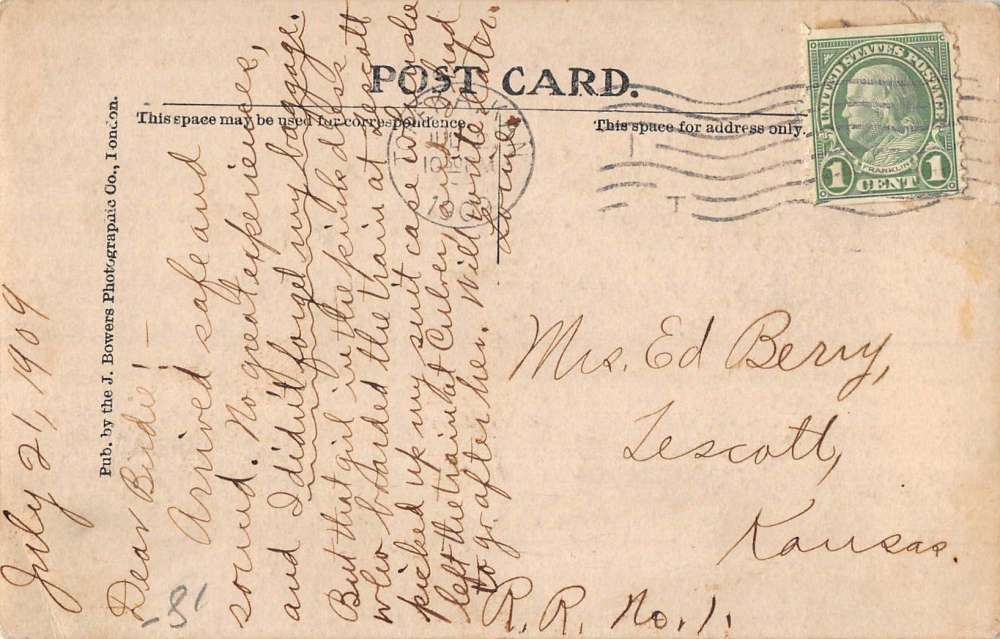 POST CARD.
This space may be used for correspondence.
This space for address only.
Pub. by the J. Bowers Photographic Co., London.
UNITED STATES POSTAGE
FRANKLIN
1 CENT 1
July 21, 1909
Dear Birdie! –
Arrived safe and
sound. No great experience,
and I didn't forget my baggage.
But that girl in the pink dress
who boarded the train at Lescott
picked up my suit case when she
left the train at Culver and I had
to go after her. Will write later.
Mrs. Ed Berry,
Lescott,
Kansas.
R. R. No. 1.